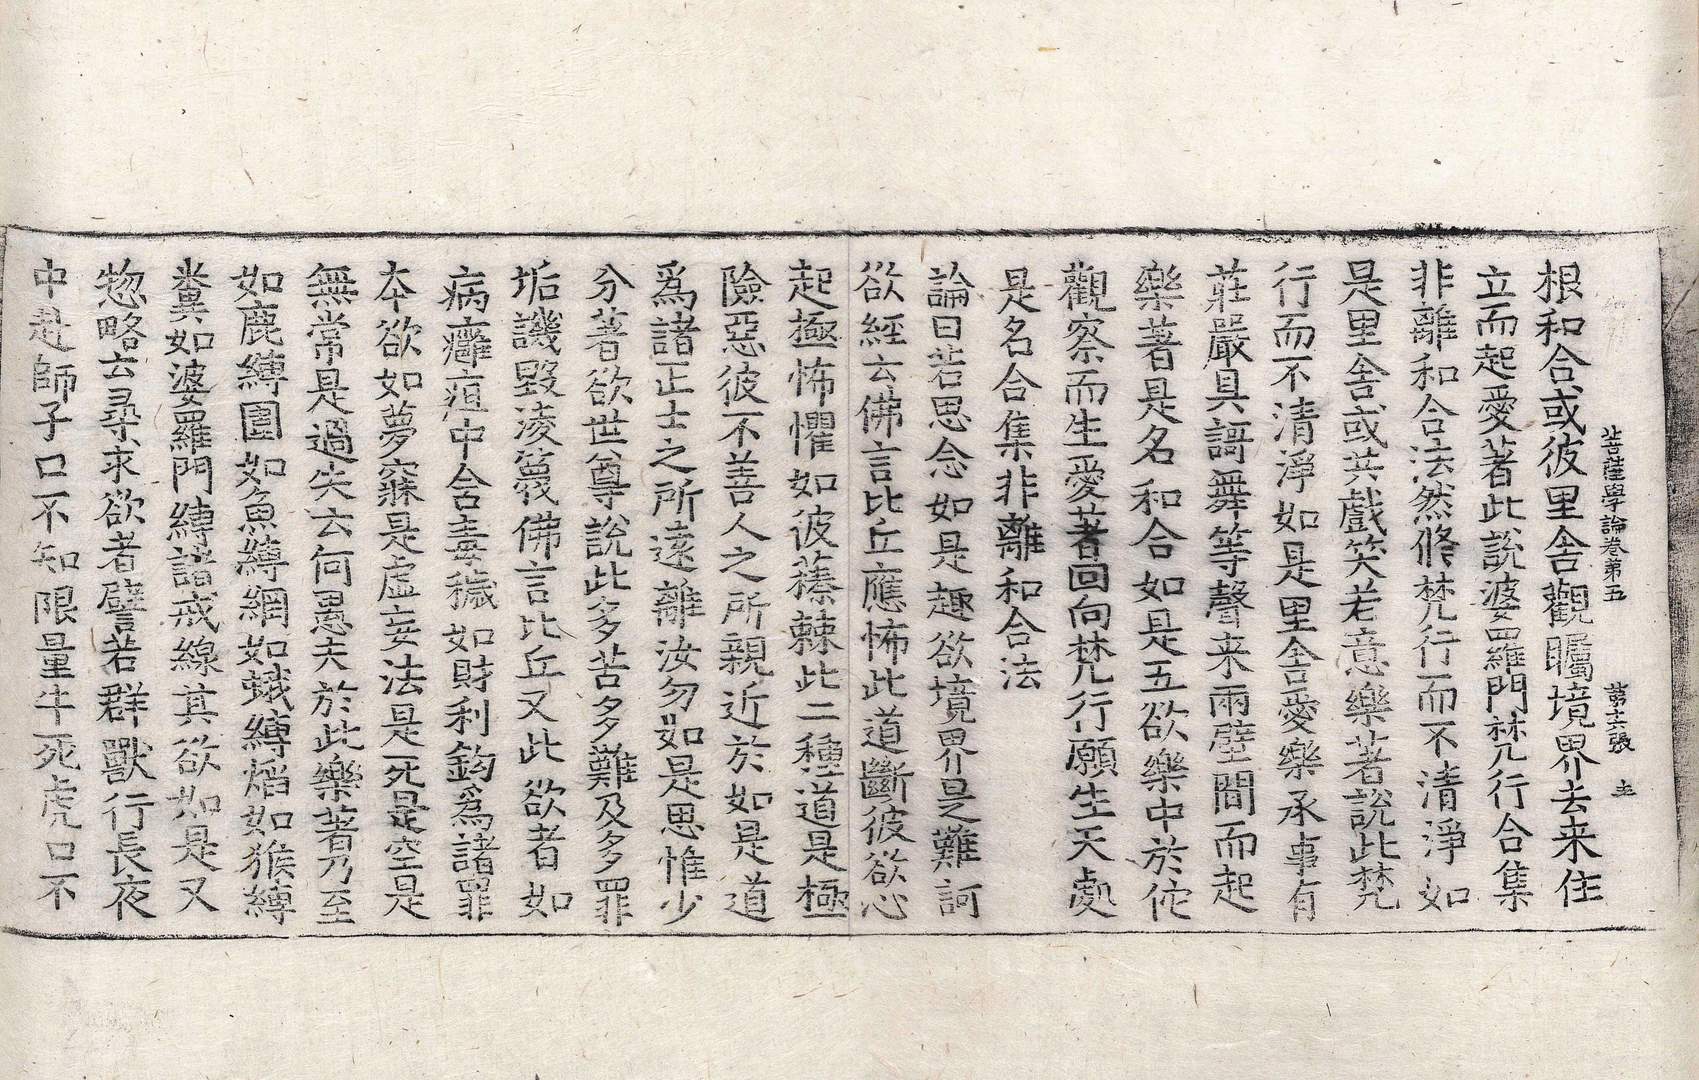 菩薩學論卷第五　第十六張　圭
根和合或彼里舍觀矚境界去来住
立而起愛著此說婆羅門梵行合集
非離和合法然修梵行而不清淨如
是里舍或共戲笑若意樂著說此梵
行而不清淨如是里舍愛樂承事有
莊嚴具謌舞等聲来兩壁間而起
樂著是名和合如是五欲樂中於佗
觀察而生愛著回向梵行願生天處
是名合集非離和合法
論曰若思念如是趣欲境界是難訶
欲經云佛言比丘應怖此道斷彼欲心
起極怖懼如彼蓁棘此二種道是極
險惡彼不善人之所親近於如是道
爲諸正士之所遠離汝勿如是思惟少
分著欲世尊說此多苦多難及多罪
垢譏毀淩篾佛言比丘又此欲者如
病癰疽中含毒穢如財利鈎爲諸罪
本欲如夢寐是虛妄法是死是空是
無常是過失云何愚夫於此樂著乃至
如鹿縛圈如魚縛網如蛾縛焰如猴縛
糞如婆羅門縛諸戒線其欲如是又
惣略云尋求欲者譬若群獸行長夜
中赴師子口不知限量牛死虎口不